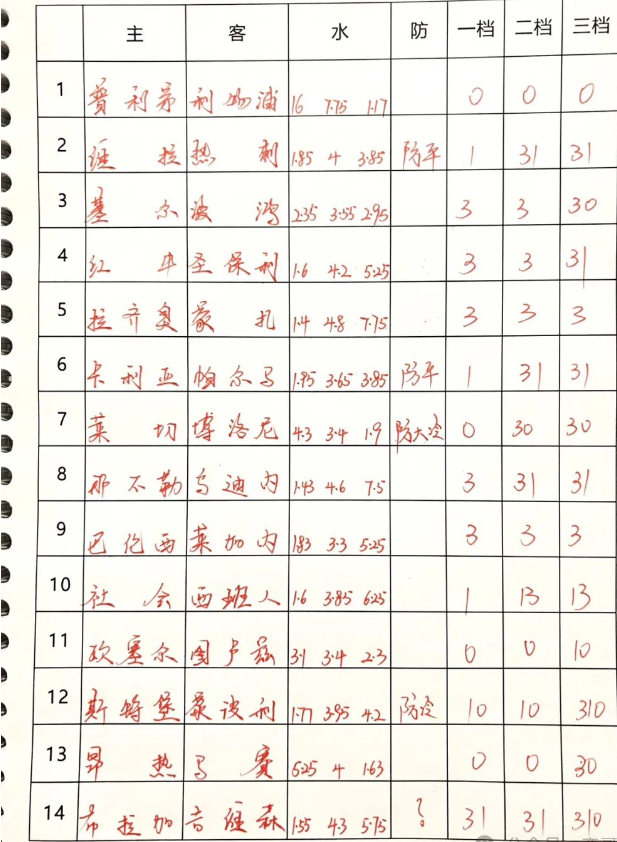 主 客 水 防 一档 二档 三档
1 赛利弟 利物浦 16 7.75 1.17 0 0 0
2 维拉 热刺 1.85 4 3.85 防平 1 31 31
3 塞尔 波鸿 2.35 3.55 2.95 3 3 30
4 红牛 圣保利 1.6 4.2 5.25 3 3 31
5 拉齐奥 蒙扎 1.4 4.8 7.75 3 3 3
6 卡利亚 帕尔马 1.95 3.65 3.85 防平 1 31 31
7 莱切 博洛尼 4.3 3.4 1.9 防大冷 0 30 30
8 那不勒 乌迪内 1.43 4.6 7.5 3 31 31
9 巴伦西 莱加内 1.83 3.3 5.25 3 3 3
10 社会 西班人 1.6 3.85 6.25 1 13 13
11 欧塞尔 图卢兹 3.1 3.4 2.3 0 0 10
12 斯特堡 蒙彼利 1.77 3.95 4.2 防冷 10 10 310
13 昂热 马赛 5.25 4 1.63 0 0 30
14 布拉加 吉维森 1.55 4.3 5.75 ? 31 31 310